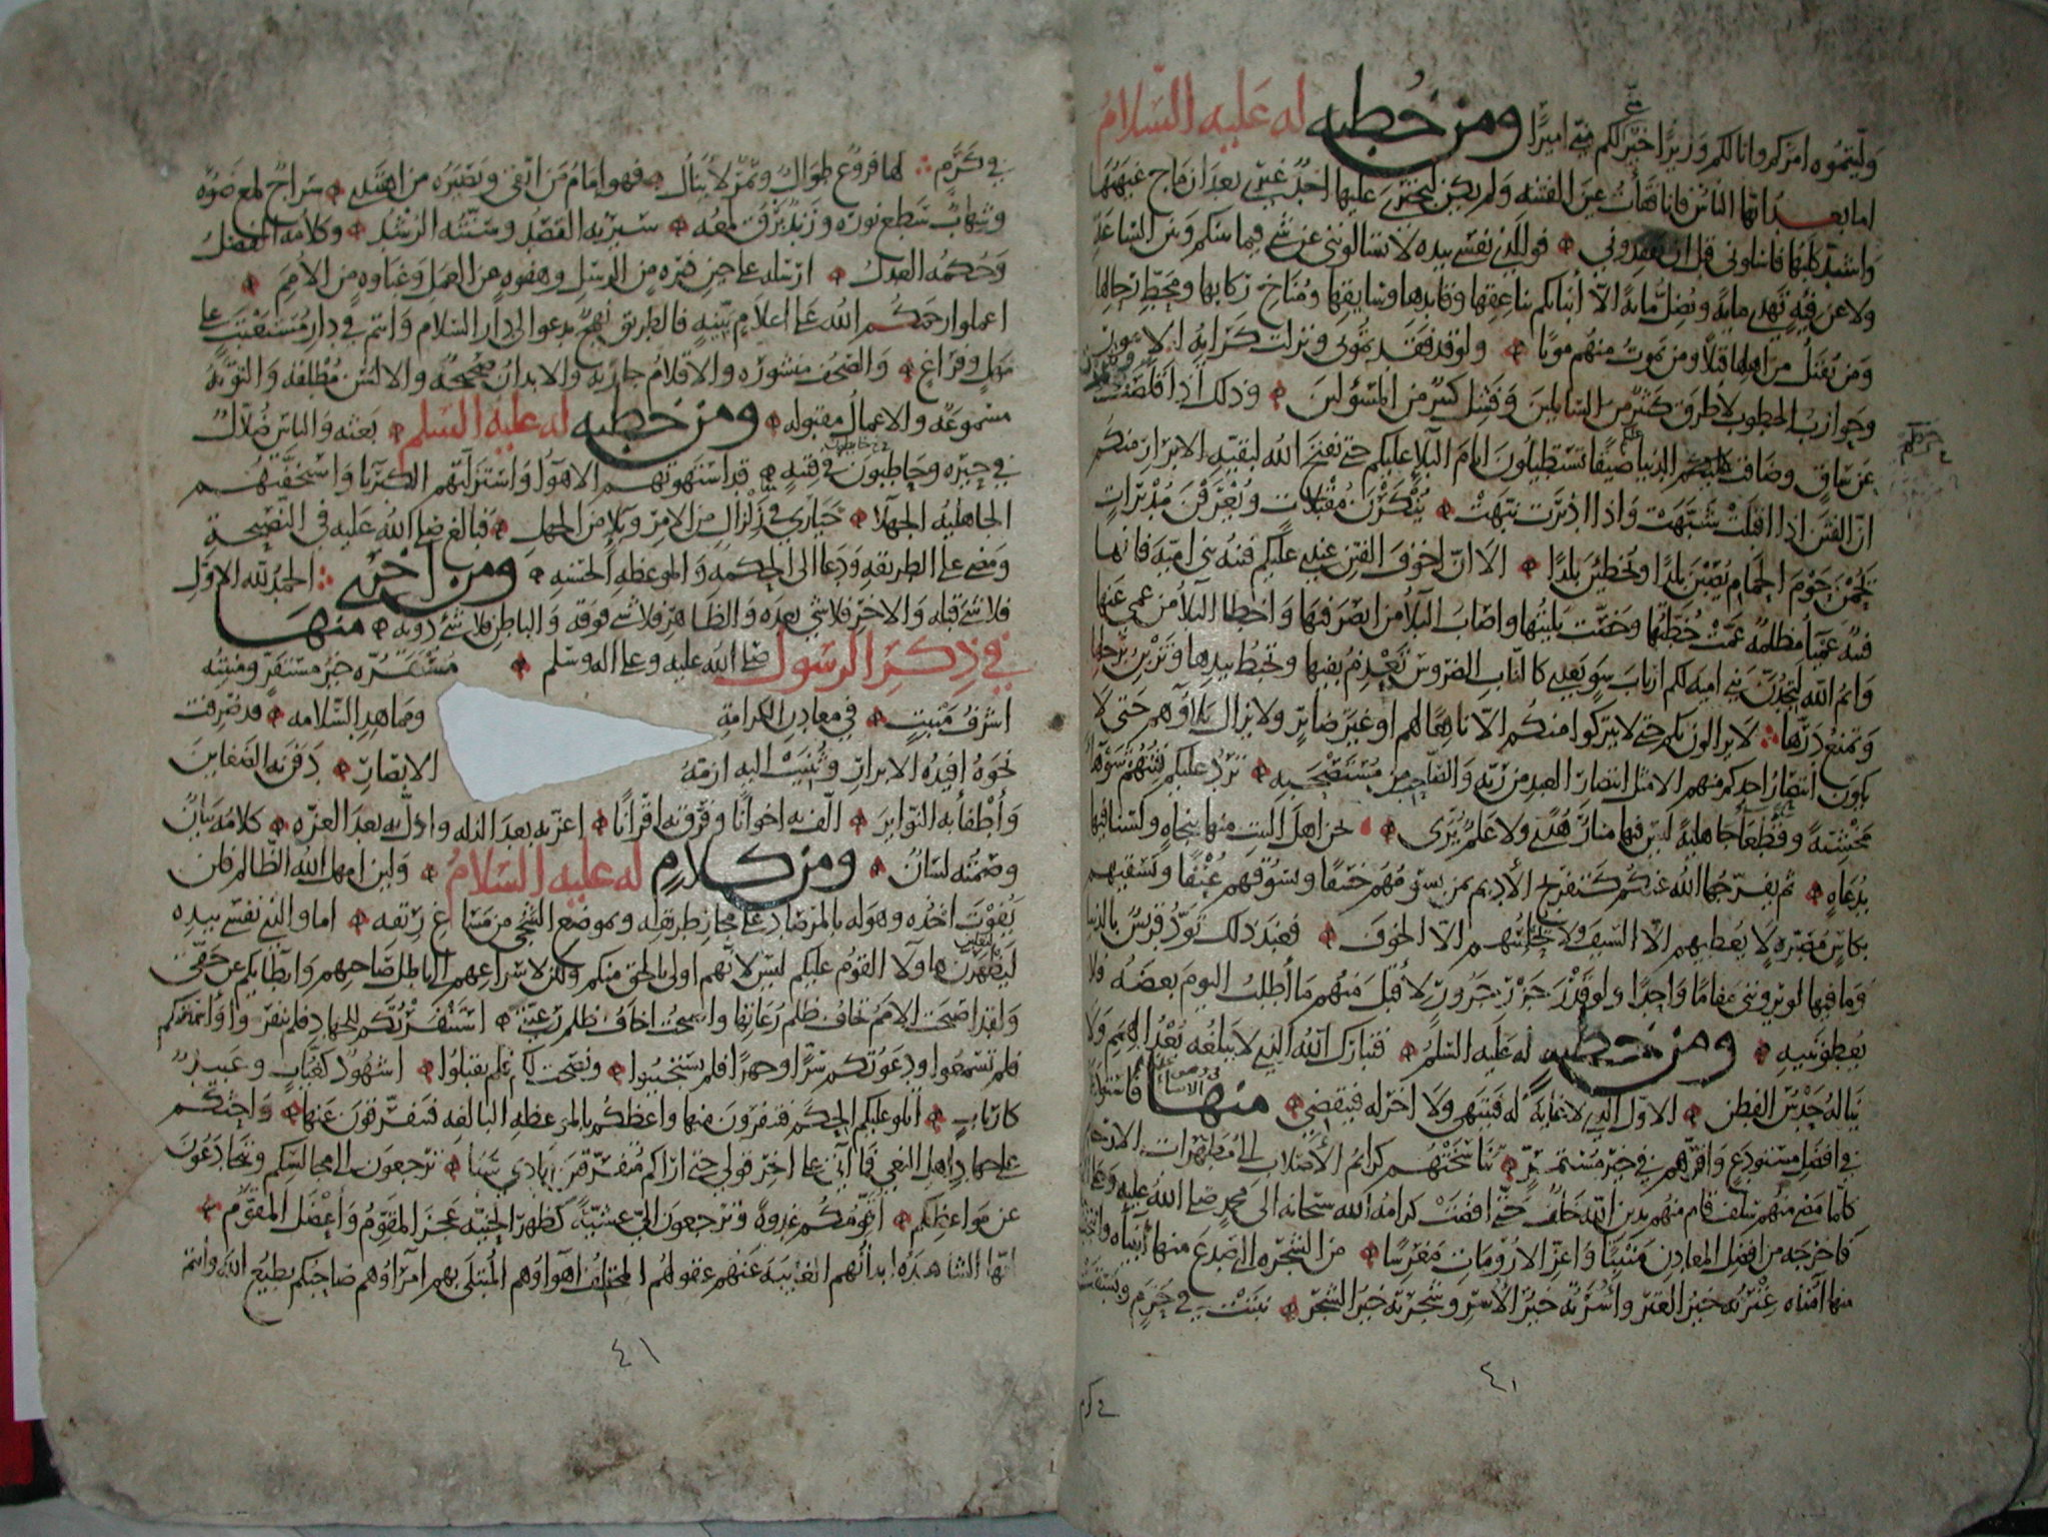 وليتموه امركم وانا لكم وزيرا خير لكم مني اميرا ومن خطبه له عليه السلام
اما بعد ايها الناس فانا فقأت عين الفتنه ولم يكن ليجترئ عليها احد غيري بعد ان ماج غيهبها
واشتد كلبها فاسألوني قبل ان تفقدوني فوالذي نفسي بيده لا تسألونني عن شي فيما بينكم وبين الساعة
ولا عن فيه تهدي مايه وتضل مايه الا أنبأتكم بناعقها وقايدها وسايقها ومناخ ركابها ومحط رحالها
ومن يقتل من اهلها قتلا ومن يموت منهم موتا ولو قد فقدتموني ونزلت كرايه الامور
وحوازب الخطوب لاطرق كثير من السايلين وفشل كثير من المسؤلين وذلك اذا قلصت
عن ساق وضاقت الدنيا عليكم ضيقا تستطيلون ايام البلا عليكم حتى يفتح الله لبقيه الابرار منكم
ان الفتن اذا اقبلت شبهت واذا ادبرت نبهت ينكرن مقبلات ويعرفن مدبرات
يحمن حوم الحمام يصبن بلدا ويخطين بلدا الا ان اخوف الفتن عندي عليكم فتنه بني اميه فانها
فتنه عميا مظلمه عمت خطتها وخصت بليتها واصاب البلا من ابصر فيها واخطا البلا من عمي عنها
وايم الله لتجدن بني اميه لكم ارباب سو بعدي كالناب الضروس تعذم بفيها وتخبط بيدها وتزبن برجلها
وتمنع درها لا يزالون بكم حتى لا يتركوا منكم الا نافعا لهم او غير ضاير ولا يزال بلاوهم حتى لا
يكون انتصار احدكم منهم الا مثل انتصار العبد من ربه والصاحب من مستصحبه ترد عليكم فتنتهم شوها
مخشيه وقطعا جاهليه ليس فيها منار هدى ولا علم يرى نحن اهل البيت منها بنجاه ولسنا فيها
بدعاه ثم يفرجها الله عنكم كتفريج الأديم بمن يسومهم خسفا ويسوقهم عنفا ويسقيهم
بكاس مصبره لا يعطيهم الا السيف ولا يحلسهم الا الخوف فعند ذلك تود قريش بالدنيا
وما فيها لو يرونني مقاما واحدا ولو قدر جزر جزور لاقبل منهم ما أطلب اليوم بعضه فلا
يعطونيه ومن خطبه له عليه السلم فتبارك الله الذي لا يبلغه بعد الهمم ولا
يناله حدس الفطن الاول الذي لا غايه له فينتهي ولا اخر له فينقضي منها فاستودعهم
في افضل مستودع واقرهم في خير مستقر تناسختهم كرايم الأصلاب الى مطهرات الارحام
كلما مضى منهم سلف قام منهم بدين الله خلف حتى افضت كرامه الله سبحانه الى محمد صلى الله عليه وعلى اله
فاخرجه من افضل المعادن منبتا واعز الارومات مغرسا من الشجره التي صدع منها أنبياه وانتجب
منها امناه عترته خير العتر وأسرته خير الأسر وشجرته خير الشجر نبتت في حرم وبسقت
في كرم
٤١
في كرم لها فروع طوال وثمر لا ينال فهو امام من اتقى وبصيره من اهتدى سراج لمع ضوءه
وشهاب سطع نوره وزند برق لمعه سيرته القصد وسنته الرشد وكلامه الفصل
وحكمه العدل ارسله على حين فتره من الرسل وهفوه عن العمل وغباوه من الأمم
اعملوا رحمكم الله على اعلام بينه فالطريق نهج يدعوا الى دار السلام وانتم في دار مستعتب على
مهل وفراغ والصحف منشوره والاقلام جاريه والابدان صحيحه والالسن مطلقه والتوبه
مسموعه والاعمال مقبوله ومن خطبه له عليه السلم بعثه والناس ضلال
في حيره وحاطبون في فتنه قد استهوتهم الاهوا واستزلتهم الكبريا واستخفتهم
الجاهليه الجهلا حيارى في زلزال من الامر وبلا من الجهل فبالغ صلى الله عليه في النصيحة
ومضى على الطريقه ودعا الى الحكمه والموعظه الحسنه ومن اخرى الحمد لله الاول
فلا شي قبله والاخر فلا شي بعده والظاهر فلا شي فوقه والباطن فلا شي دونه منها
في ذكر الرسول صلى الله عليه وعلى اله وسلم مستقره خير مستقر ومنبته
اشرف منبت في معادن الكرامة ومماهد السلامه قد صرفت
نحوه افيده الابرار وثنيت اليه ازمة الابصار دفن به الضغاين
وأطفأ به النواير الف به اخوانا وفرق به اقرانا اعز به بعد الذله واذل به بعد العزه كلامه بيان
وصمته لسان ومن كلام له عليه السلام ولين امهل الله الظالم فلن
يفوت اخذه وهو له بالمرصاد على مجاز طريقه وبموضع الشجى من مساغ ريقه اما والذي نفسي بيده
ليظهرن هاولا القوم عليكم ليس لانهم اولى بالحق منكم ولكن لاسراعهم الى باطل صاحبهم وابطايكم عن حقي
ولقد اصبحت الامم تخاف ظلم رعاتها واصبحت اخاف ظلم رعيتي استنفرتكم للجهاد فلم تنفروا وأسمعتكم
فلم تسمعوا ودعوتكم سرا وجهرا فلم تستجيبوا ونصحت لكم فلم تقبلوا اشهود كغياب وعبيد
كارباب اتلو عليكم الحكم فتنفرون منها واعظكم بالموعظه البالغه فتتفرقون عنها واحثكم
على جهاد اهل البغي فما آتي على اخر قولي حتى اراكم متفرقين ايادي سبا ترجعون الى مجالسكم وتتخادعون
عن مواعظكم اقومكم غدوة وترجعون الي عشية كظهر الحنيه عجز المقوم وأعضل المقوم
ايها الشاهده ابدانهم الغايبه عنهم عقولهم المختلفه اهواوهم المبتلى بهم امراوهم صاحبكم يطيع الله وانتم
٤١